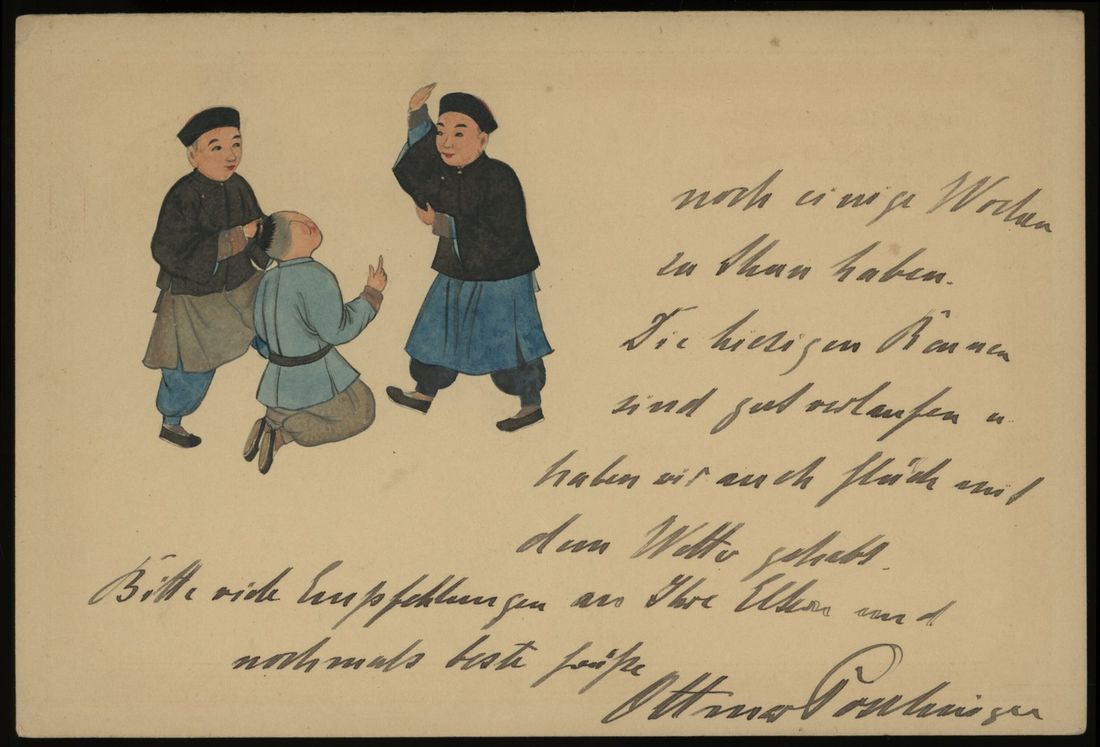 noch einige Wochen
zu thun haben.
Die hiesigen Rennen
sind gut verlaufen u.
haben wir auch Glück mit
dem Wetter gehabt.
Bitte viele Empfehlungen an Ihre Eltern und
nochmals beste Grüße
Ottmar